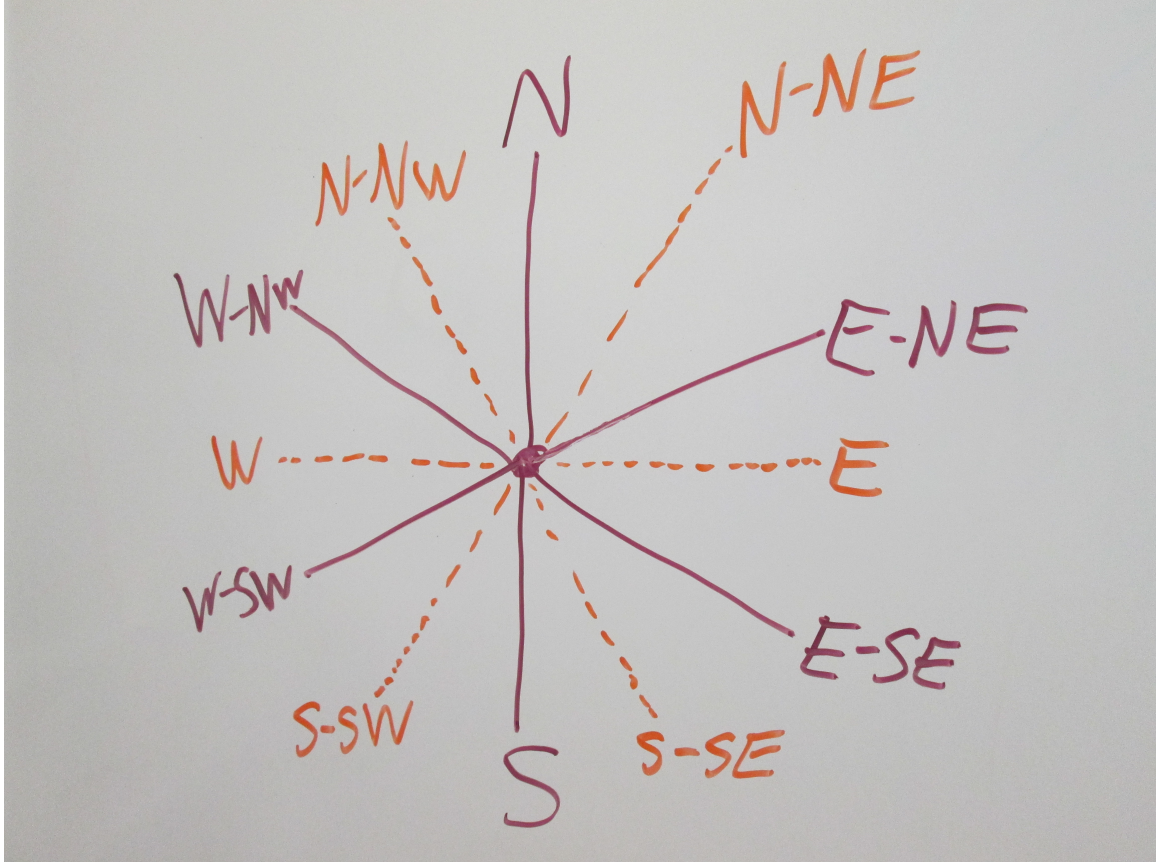 N
N-NE
N-NW
W-NW
E-NE
W
E
W-SW
E-SE
S-SW
S-SE
S